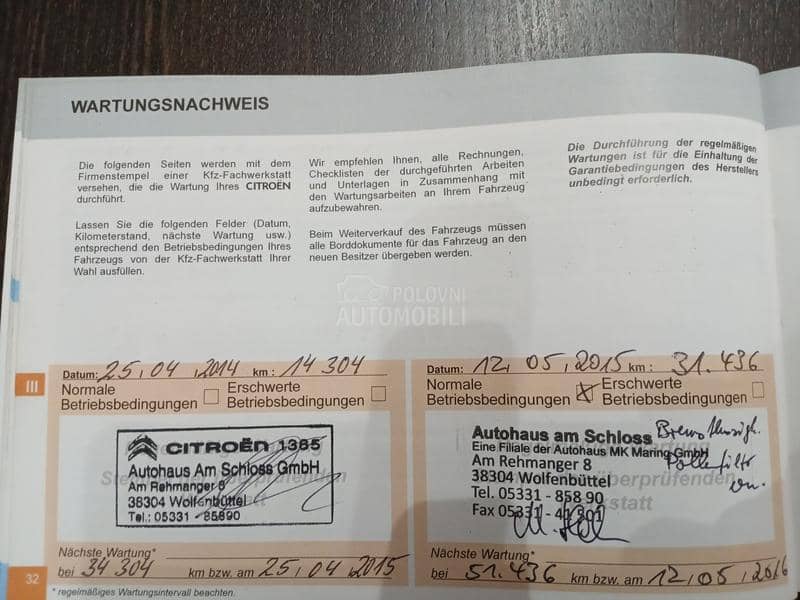 WARTUNGSNACHWEIS
Die folgenden Seiten werden mit dem
Firmenstempel einer Kfz-Fachwerkstatt
versehen, die die Wartung Ihres CITROËN
durchführt.
Lassen Sie die folgenden Felder (Datum,
Kilometerstand, nächste Wartung usw.)
entsprechend den Betriebsbedingungen Ihres
Fahrzeugs von der Kfz-Fachwerkstatt Ihrer
Wahl ausfüllen.
Wir empfehlen Ihnen, alle Rechnungen,
Checklisten der durchgeführten Arbeiten
und Unterlagen in Zusammenhang mit
den Wartungsarbeiten an Ihrem Fahrzeug
aufzubewahren.
Beim Weiterverkauf des Fahrzeugs müssen
alle Borddokumente für das Fahrzeug an den
neuen Besitzer übergeben werden.
Die Durchführung der regelmäßigen
Wartungen ist für die Einhaltung der
Garantiebedingungen des Herstellers
unbedingt erforderlich.
POLOVNI
AUTOMOBILI
III
Datum: 25,04,2014 km: 14 304
Normale
Betriebsbedingungen
Erschwerte
Betriebsbedingungen
CITROËN 1365
Autohaus Am Schloss GmbH
Am Rehmanger 8
38304 Wolfenbüttel
Tel.: 05331 - 85890
Nächste Wartung*
bei 34 304 km bzw. am 25,04,2015
Datum: 12, 05,2015 km: 31.436
Normale
Betriebsbedingungen
Erschwerte
Betriebsbedingungen
Autohaus am Schloss
Eine Filiale der Autohaus MK Maring GmbH
Am Rehmanger 8
38304 Wolfenbüttel
Tel. 05331 - 858 90
Fax 05331 - 41301
überprüfenden
Nächste Wartung*
bei 51.436 km bzw. am 12,05,2016
32
* regelmäßiges Wartungsintervall beachten.